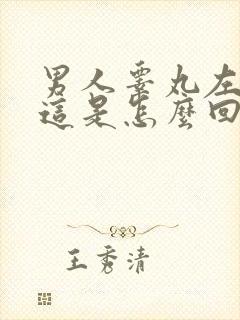 男人睪丸左
這是怎麼回
王秀清